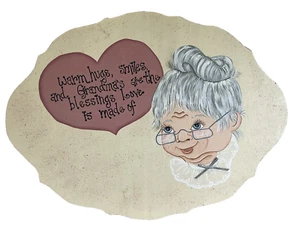 Warm hugs, smiles,
and Grandma's are the
blessings love
is made of